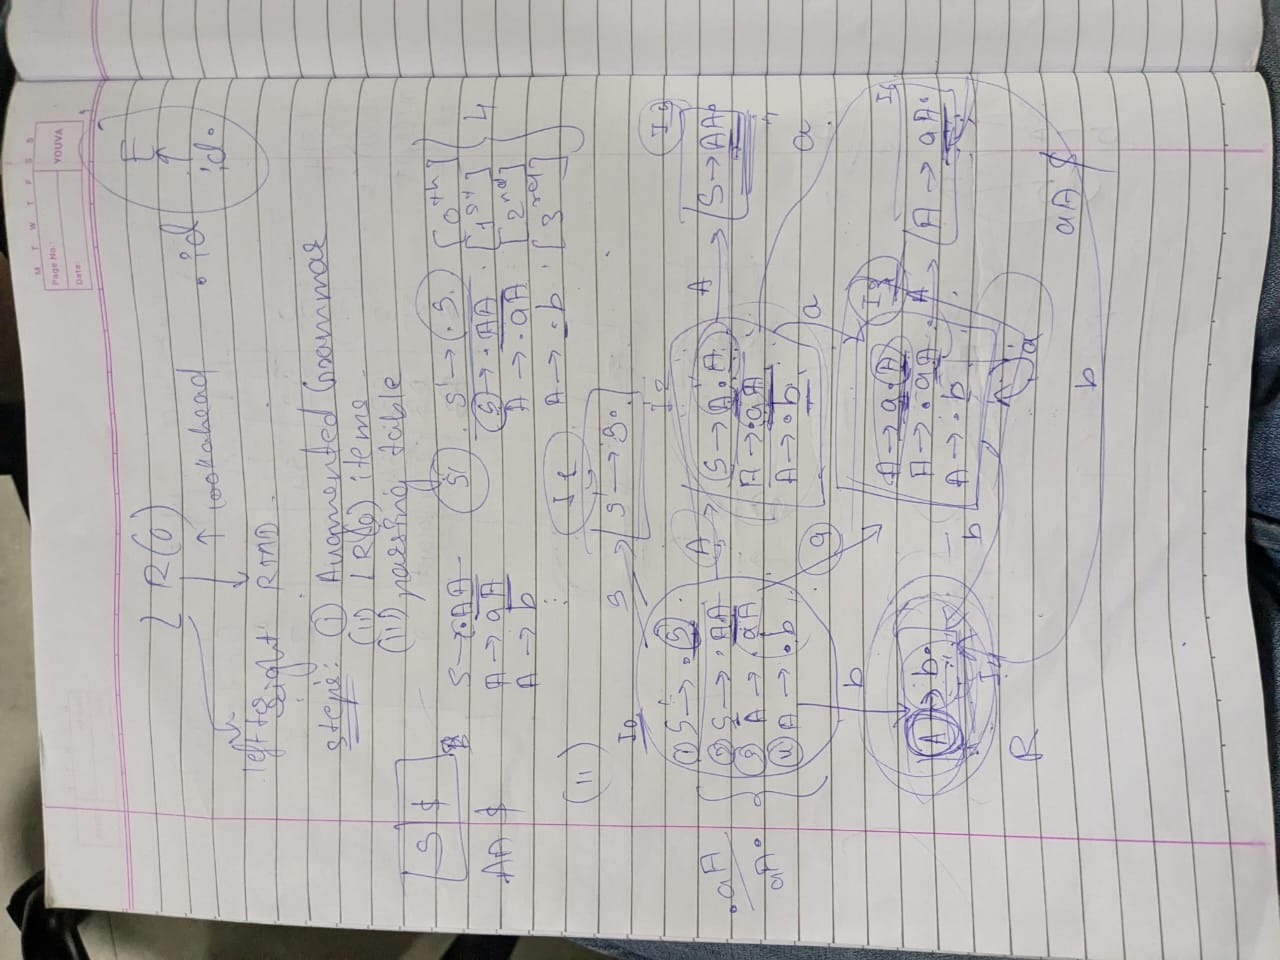 M T W T F S S
Page No.:
YOUVA
Date:
LR(0)
↑ lookahead
left to right
RMD
E
↑
id.
.id
steps: (i) Augmented Grammar
(ii) LR(0) items
(iii) parsing table
S $
AA $
S → .AA
A → aA
A → b
S'
S' → .S. [0th]
S → .AA. [1st]
A → .aA [2nd]
A → .b [3rd]
4
(ii)
I1
S' → S.
S
I0
(1) S' → .S
(2) S → .AA
(3) A → .aA
(4) A → .b
.aA
aA.
A
I2
S → A.A
A → .aA
A → .b
A
S → AA.
a
a
a
b
I3
A → a.A
A → .aA
A → .b
A
I6
A → aA.
A → b.
I4
R
b
a
aA $
b